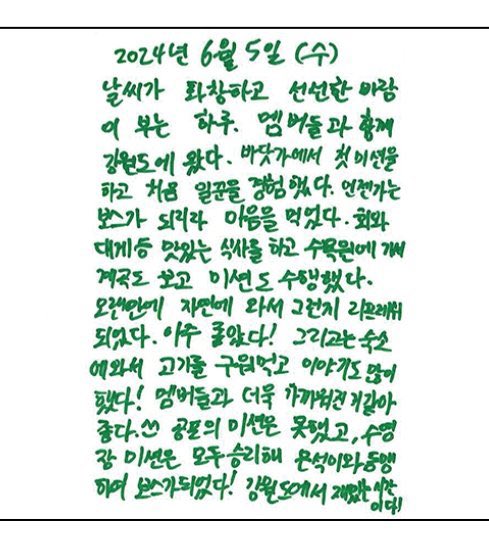 2024년 6월 5일 (수)
날씨가 화창하고 선선한 바람
이 부는 하루. 멤버들과 함께
강원도에 왔다. 바닷가에서 첫 미션을
하고 처음 일꾼을 경험했다. 언젠가는
보스가 되리라 마음을 먹었다. 회와
대게등 맛있는 식사를 하고 수목원에 가서
계곡도 보고 미션도 수행했다.
오랜만에 자연에 와서 그런지 리프레쉬
되었다. 아주 좋았다! 그리고는 숙소
에와서 고기를 구워먹고 이야기도 많이
했다! 멤버들과 더욱 가까워진 거같아
좋다. 공포의 미션은 못했고, 수영
장 미션은 모두 승리해 은석이와 동맹
하여 보스가되었다! 강원도에서 재밌는 시간
이다!